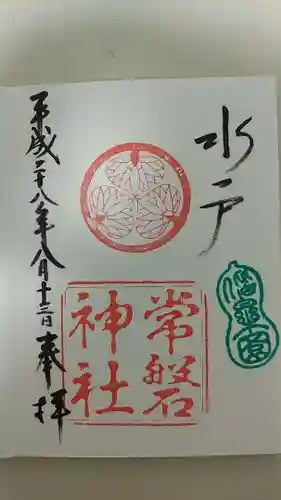 水戸
常磐
神社
偕楽園
平成二十八年八月十三日 奉拝